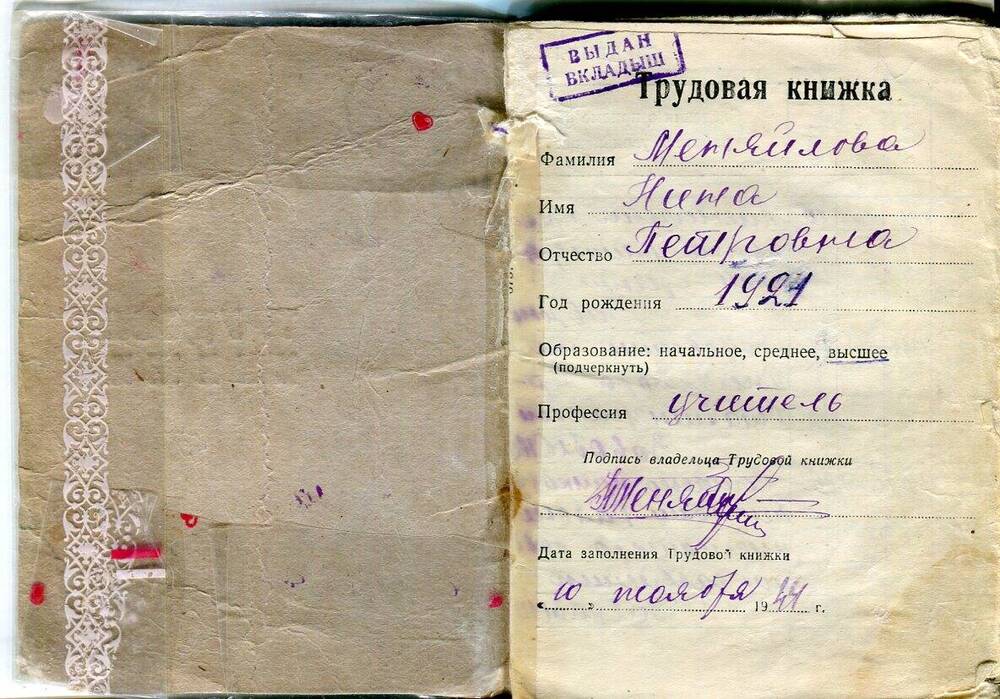 ВЫДАН
ВКЛАДЫШ
Трудовая книжка
Фамилия Меняйлова
Имя Нина
Отчество Петровна
Год рождения 1921
Образование: начальное, среднее, высшее
(подчеркнуть)
Профессия учитель
Подпись владельца Трудовой книжки
Дата заполнения Трудовой книжки
„10“ ноября 1944 г.